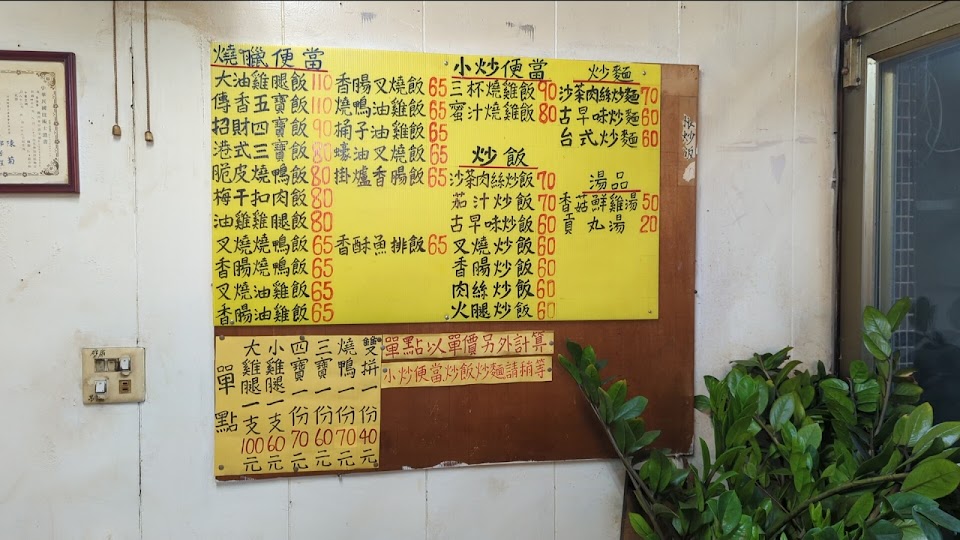 燒臘便當
大油雞腿飯110
傳香五寶飯110
招財四寶飯90
港式三寶飯80
脆皮燒鴨飯80
梅干扣肉飯80
油雞雞腿飯80
叉燒燒鴨飯65
香腸燒鴨飯65
叉燒油雞飯65
香腸油雞飯65
香腸叉燒飯65
燒鴨油雞飯65
桶子油雞飯65
蠔油叉燒飯65
掛爐香腸飯65
香酥魚排飯65
小炒便當
三杯燒雞飯90
蜜汁燒雞飯80
炒飯
沙茶肉絲炒飯70
茄汁炒飯70
古早味炒飯60
叉燒炒飯60
香腸炒飯60
肉絲炒飯60
火腿炒飯60
炒麵
沙茶肉絲炒麵70
古早味炒麵60
台式炒麵60
湯品
香菇鮮雞湯50
貢丸湯20
單點
大雞腿一支100元
小雞腿一支60元
四寶一份70元
三寶一份60元
燒鴨一份70元
雙拼一份40元
單點以單價另外計算
小炒便當.炒飯炒麵請稍等